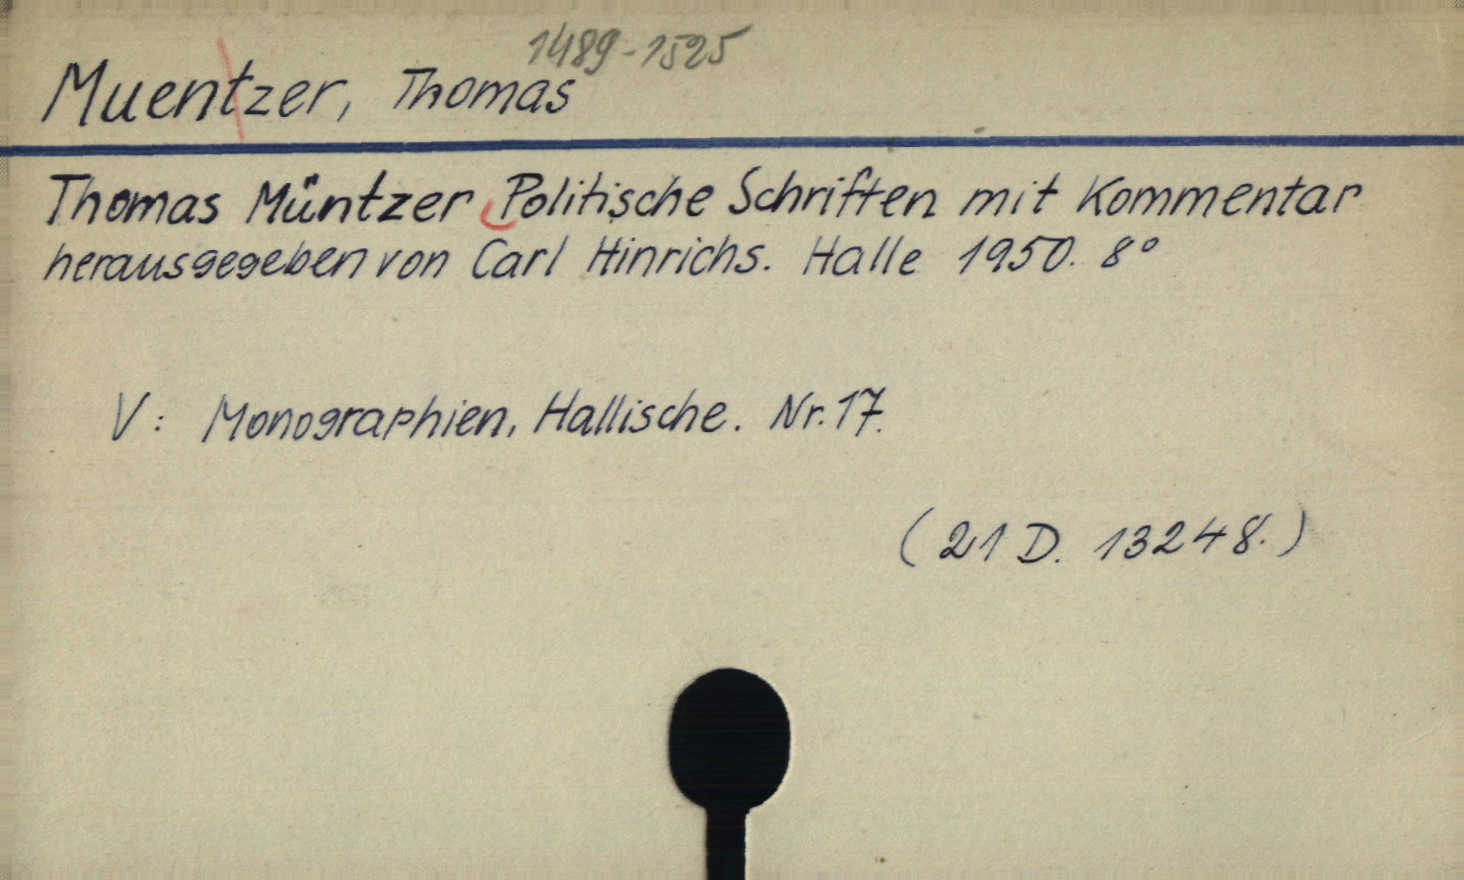 1489-1525
Muentzer, Thomas
Thomas Müntzer Politische Schriften mit Kommentar
herausgegeben von Carl Hinrichs. Halle 1950. 8°
V: Monographien, Hallische. Nr. 17.
(21 D. 13248.)